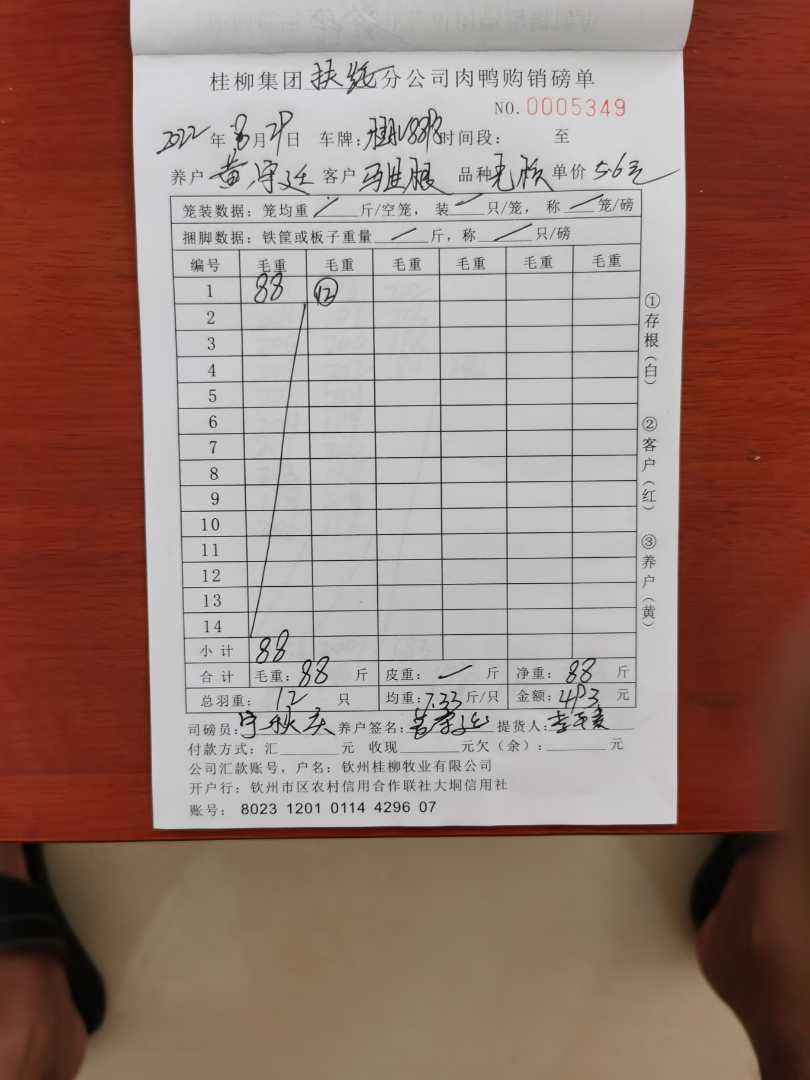 桂柳集团扶绥分公司肉鸭购销磅单
NO.0005349
2022年8月29日 车牌: 时间段: 至
养户 黄守廷 客户 马进股 品种 毛 单价 5.6元
笼装数据: 笼均重 / 斤/空笼, 装 / 只/笼, 称 / 笼/磅
捆脚数据: 铁筐或板子重量 / 斤, 称 / 只/磅
编号 毛重 毛重 毛重 毛重 毛重 毛重
1 88 ⑫
2
3
4
5
6
7
8
9
10
11
12
13
14
小计 88
合计 毛重: 88 斤 皮重: / 斤 净重: 88 斤
总羽重: 12 只 均重: 7.33 斤/只 金额: 493 元
司磅员: 宁秋庆 养户签名: 黄守廷 提货人:
付款方式: 汇 元 收现 元欠(余): 元
公司汇款账号, 户名: 钦州桂柳牧业有限公司
开户行: 钦州市区农村信用合作联社大垌信用社
账号: 8023 1201 0114 4296 07
①存根(白) ②客户(红) ③养户(黄)